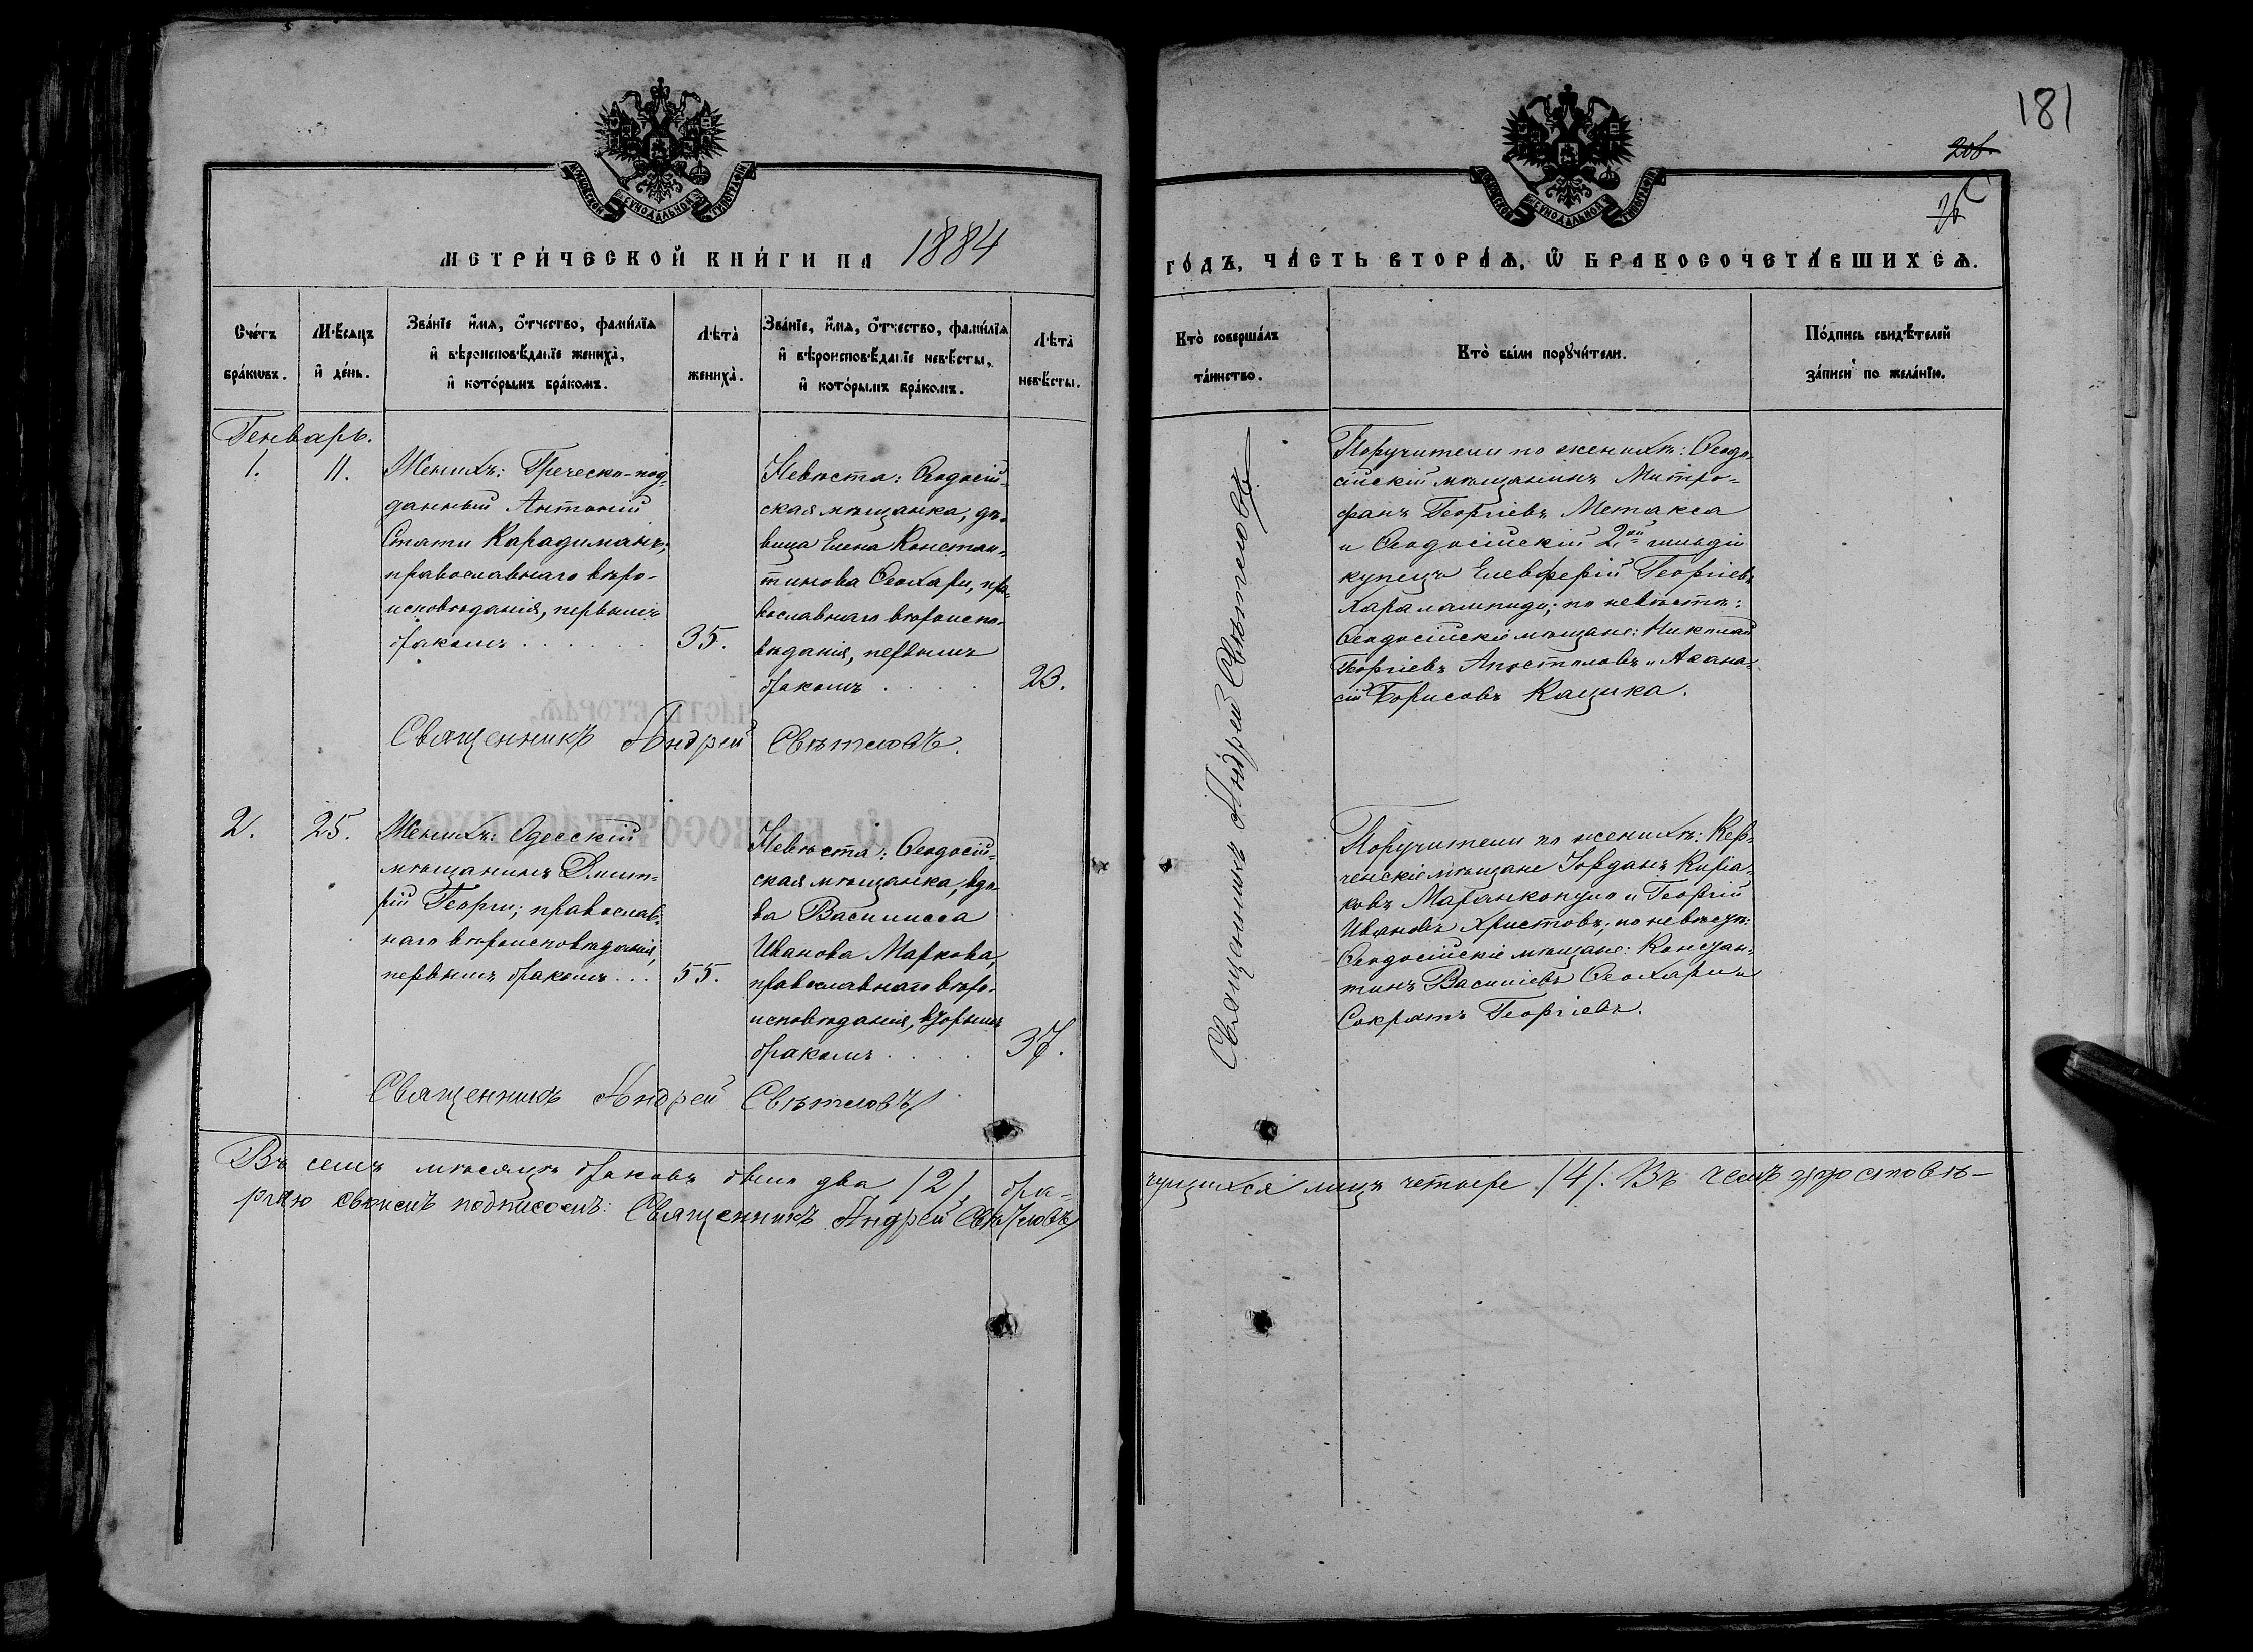 181
МОСКОВСКОЙ СѴНОДАЛЬНОЙ ТИПОГРАФІИ
МОСКОВСКОЙ СѴНОДАЛЬНОЙ ТИПОГРАФІИ
МЕТРИ́ЧЕСКОЙ КНИ́ГИ НА 1884
ГО́ДЪ, ЧА́СТЬ ВТОРА́Ѧ, Ѿ БРАКОСОЧЕТА́ВШИХСѦ.
Сче́тъ
бра́кѡвъ.
Мѣ́сяцъ
и҆ де́нь.
Зва́нїе и҆́мѧ, о҆́тчество, фами́лїѧ
и҆ вѣроисповѣ́данїе жениха̀,
и҆ кото́рымъ бра́комъ.
Лѣ́та̀
жениха̀.
Зва́нїе, и҆́мѧ, о҆́тчество, фами́лїѧ
и҆ вѣроисповѣ́данїе невѣ́сты,
и҆ кото́рымъ бра́комъ.
Лѣ́та̀
невѣ́сты.
Кто̀ соверша́лъ
та́инство.
Кто̀ бы́ли порꙋчи́тели.
По́дпись свидѣ́телей
за́писи по жела́нїю.
Генварь.
1.
11.
Женихъ: Греческо-под-
данный Антоній
Стати Карадиманъ,
православнаго вѣро-
исповѣданія, первымъ
бракомъ . . . . . .
35.
Невѣста: Ѳеодосій-
ская мѣщанка, дѣ-
вица Елена Констан-
тинова Ѳеохари, пра-
вославнаго вѣроиспо-
вѣданія, первымъ
бракомъ . . . .
23.
Священникъ Андрей Свѣтловъ.
Священникъ Андрей Свѣтловъ
Поручители по женихѣ: Ѳеодо-
сійскій мѣщанинъ Митро-
фанъ Георгіевъ Метакса
и Ѳеодосійскій 2ой гильдіи
купецъ Елевферій Георгіевъ
Харалампиди; по невѣстѣ:
Ѳеодосійскіе мѣщане: Николай
Георгіевъ Апостоловъ и Аѳана-
сій Борисовъ Кацика.
2.
25.
Женихъ: Одесскій
мѣщанинъ Дмит-
рій Георги; православ-
наго вѣроисповѣданія,
первымъ бракомъ . . .
55.
Невѣста: Ѳеодосій-
ская мѣщанка, вдо-
ва Василисса
Иванова Маркова,
православнаго вѣро-
исповѣданія, вторымъ
бракомъ . . . .
37.
Священникъ Андрей Свѣтловъ
Поручители по женихѣ: Кер-
ченскіе мѣщане Іорданъ Киріа-
ковъ Маранкопуло и Георгій
Ивановъ Христовъ; по невѣстѣ:
Ѳеодосійскіе мѣщане: Констан-
тинъ Василіевъ Ѳеохари и
Сократъ Георгіевъ.
Въ семъ мѣсяцѣ браковъ было два /2/, бра-
чущихся лицъ четыре /4/. Въ чемъ удостовѣ-
ряю своимъ подписомъ: Священникъ Андрей Свѣтловъ